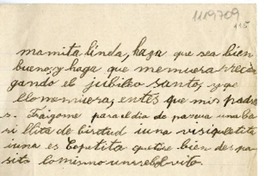 1119709
mamita linda, haga que sea bien
bueno; y haga que me muera recien
gando el jubileo santo; y que
llo me muera, entes que mis padre
s. Traigame para el dia de pascua una ba
rillita de birtud i una
i una es Copetita que tire bien des pa
sito lo mismo un